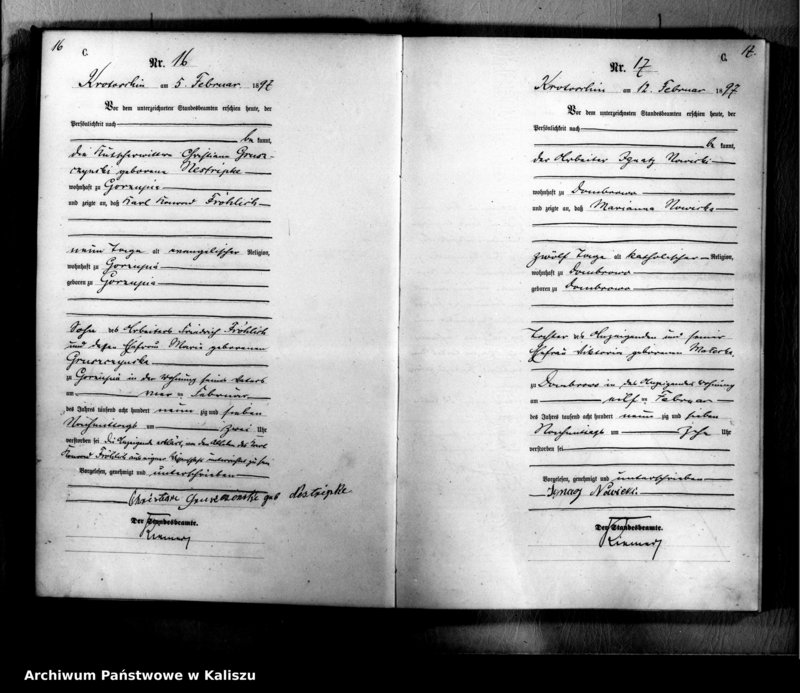 16
C.
Nr. 16
Krotoschin am 5 Februar 1897
Vor dem unterzeichneten Standesbeamten erschien heute, der
Persönlichkeit nach
be kannt,
die Kutscherwittwe Christiana Grusz-
czynski geborene Nestripke
wohnhaft zu Gorzupia
und zeigte an, daß Karl Konrad Fröhlich
neun Tage alt evangelischer Religion,
wohnhaft zu Gorzupia
geboren zu Gorzupia
Sohn des Arbeiters Friedrich Fröhlich
und dessen Ehefrau Marie geborenen
Gruszczynska
zu Gorzupia in der Wohnung seines Vaters
am Februar
des Jahres tausend acht hundert neun zig und sieben
Nachmittags um zwei Uhr
verstorben sei. Die Anzeigende erklärt, von dem Ableben des Karl
Konrad Fröhlich aus eigener Wissenschaft unterrichtet zu sein
Vorgelesen, genehmigt und unterschrieben
geb Nestripke
Der Standesbeamte.
17.
C.
Nr. 17
Krotoschin am 12. Februar 1897
Vor dem unterzeichneten Standesbeamten erschien heute, der
Persönlichkeit nach
be kannt,
der Arbeiter Ignatz Nowicki
wohnhaft zu Dombrowo
und zeigte an, daß Marianna Nowicka
zwölf Tage alt katholischer Religion,
wohnhaft zu Dombrowo
geboren zu Dombrowo
Tochter des Anzeigenden und seiner
Ehefrau Viktoria geborenen
zu Dombrowo in des Anzeigenden Wohnung
am elf ten Februar
des Jahres tausend acht hundert neun zig und sieben
Nachmittags um Uhr
verstorben sei
Vorgelesen, genehmigt und unterschrieben
Ignacy Nowicki
Der Standesbeamte.
Archiwum Państwowe w Kaliszu